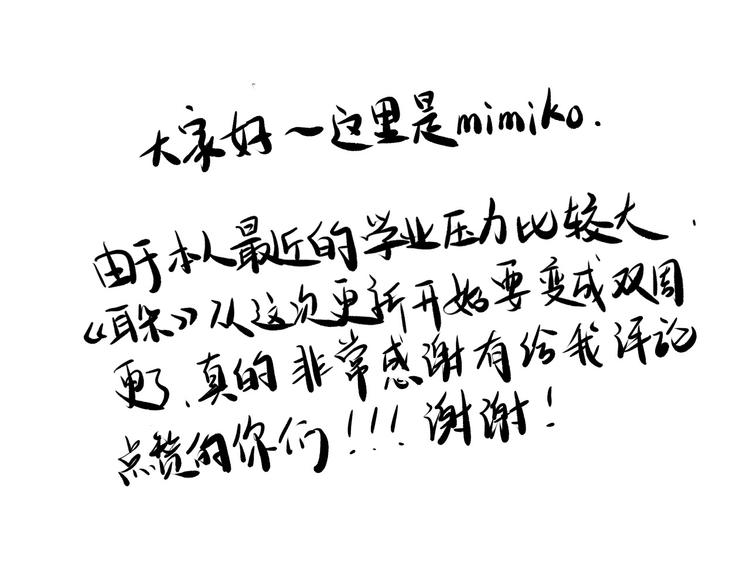 大家好～这里是mimiko.
由于本人最近的学业压力比较大.
《耳朵》从这次更新开始要变成双周
更了、真的非常感谢有给我评论
点赞的你们!!!谢谢!